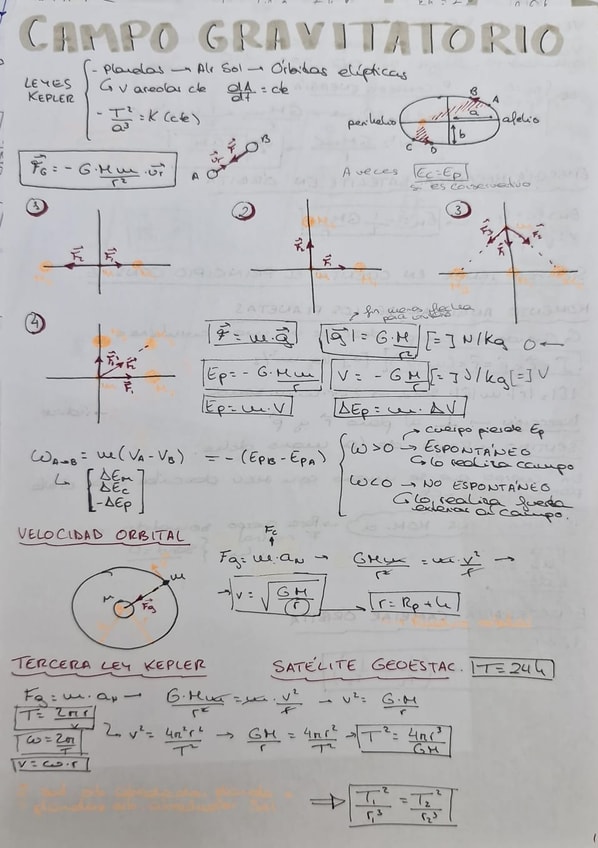 CAMPO GRAVITATORIO
LEYES KEPLER
- Planetas → Alr Sol → Órbitas elípticas
G v areolas cte dA/dt = cte
- T²/a³ = K (cte)
B
A
perihelio
a
afelio
b
C
D
F⃗G = - G·M·m/r² · u⃗r
A
B
u⃗r
r⃗
A veces Ec = Ep
si es conservativo
1
F⃗2
F⃗1
2
F⃗1
3
F⃗2
F⃗1
4
F⃗2
F⃗1
F⃗ = m·g⃗
|g⃗| = G·M/r² [=] N/kg
Ep = - G·M·m/r
V = - G·M/r [=] J/kg [=] V
Ep = m·V
ΔEp = m·ΔV
cuerpo pierde Ep
WA→B = m(VA - VB) = -(EpB - EpA)
ΔEm
ΔEc
-ΔEp
W>0 → ESPONTÁNEO
lo realiza campo
W<0 → NO ESPONTÁNEO
lo realiza fuerza
externa al campo.
VELOCIDAD ORBITAL
Fc
Fg = m·aN → GMm/r² = m·v²/r →
→ v = √(GM/r) → r = Rp + h
M
m
F⃗g
TERCERA LEY KEPLER
SATÉLITE GEOESTAC. T = 24h
Fg = m·aN → G·M·m/r² = m·v²/r → v² = G·M/r
T = 2πr/v
ω = 2π/T
v = ω·r
v² = 4π²r²/T² → GM/r = 4π²r²/T² → T² = 4πr³/GM
⇒ T1²/r1³ = T2²/r2³